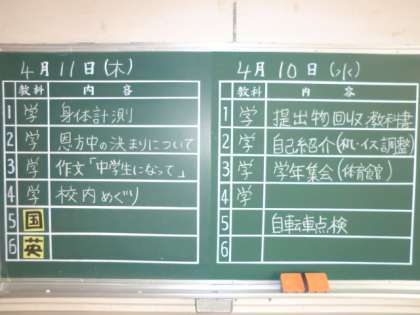 4月11日(木)
教科 内容
1 学 身体計測
2 学 恩方中の決まりについて
3 学 作文「中学生になって」
4 学 校内めぐり
5 国
6 英
4月10日(水)
教科 内容
1 学 提出物回収 教科書
2 学 自己紹介(机・イス調整)
3 学 学年集会(体育館)
4 学
5 自転車点検
6